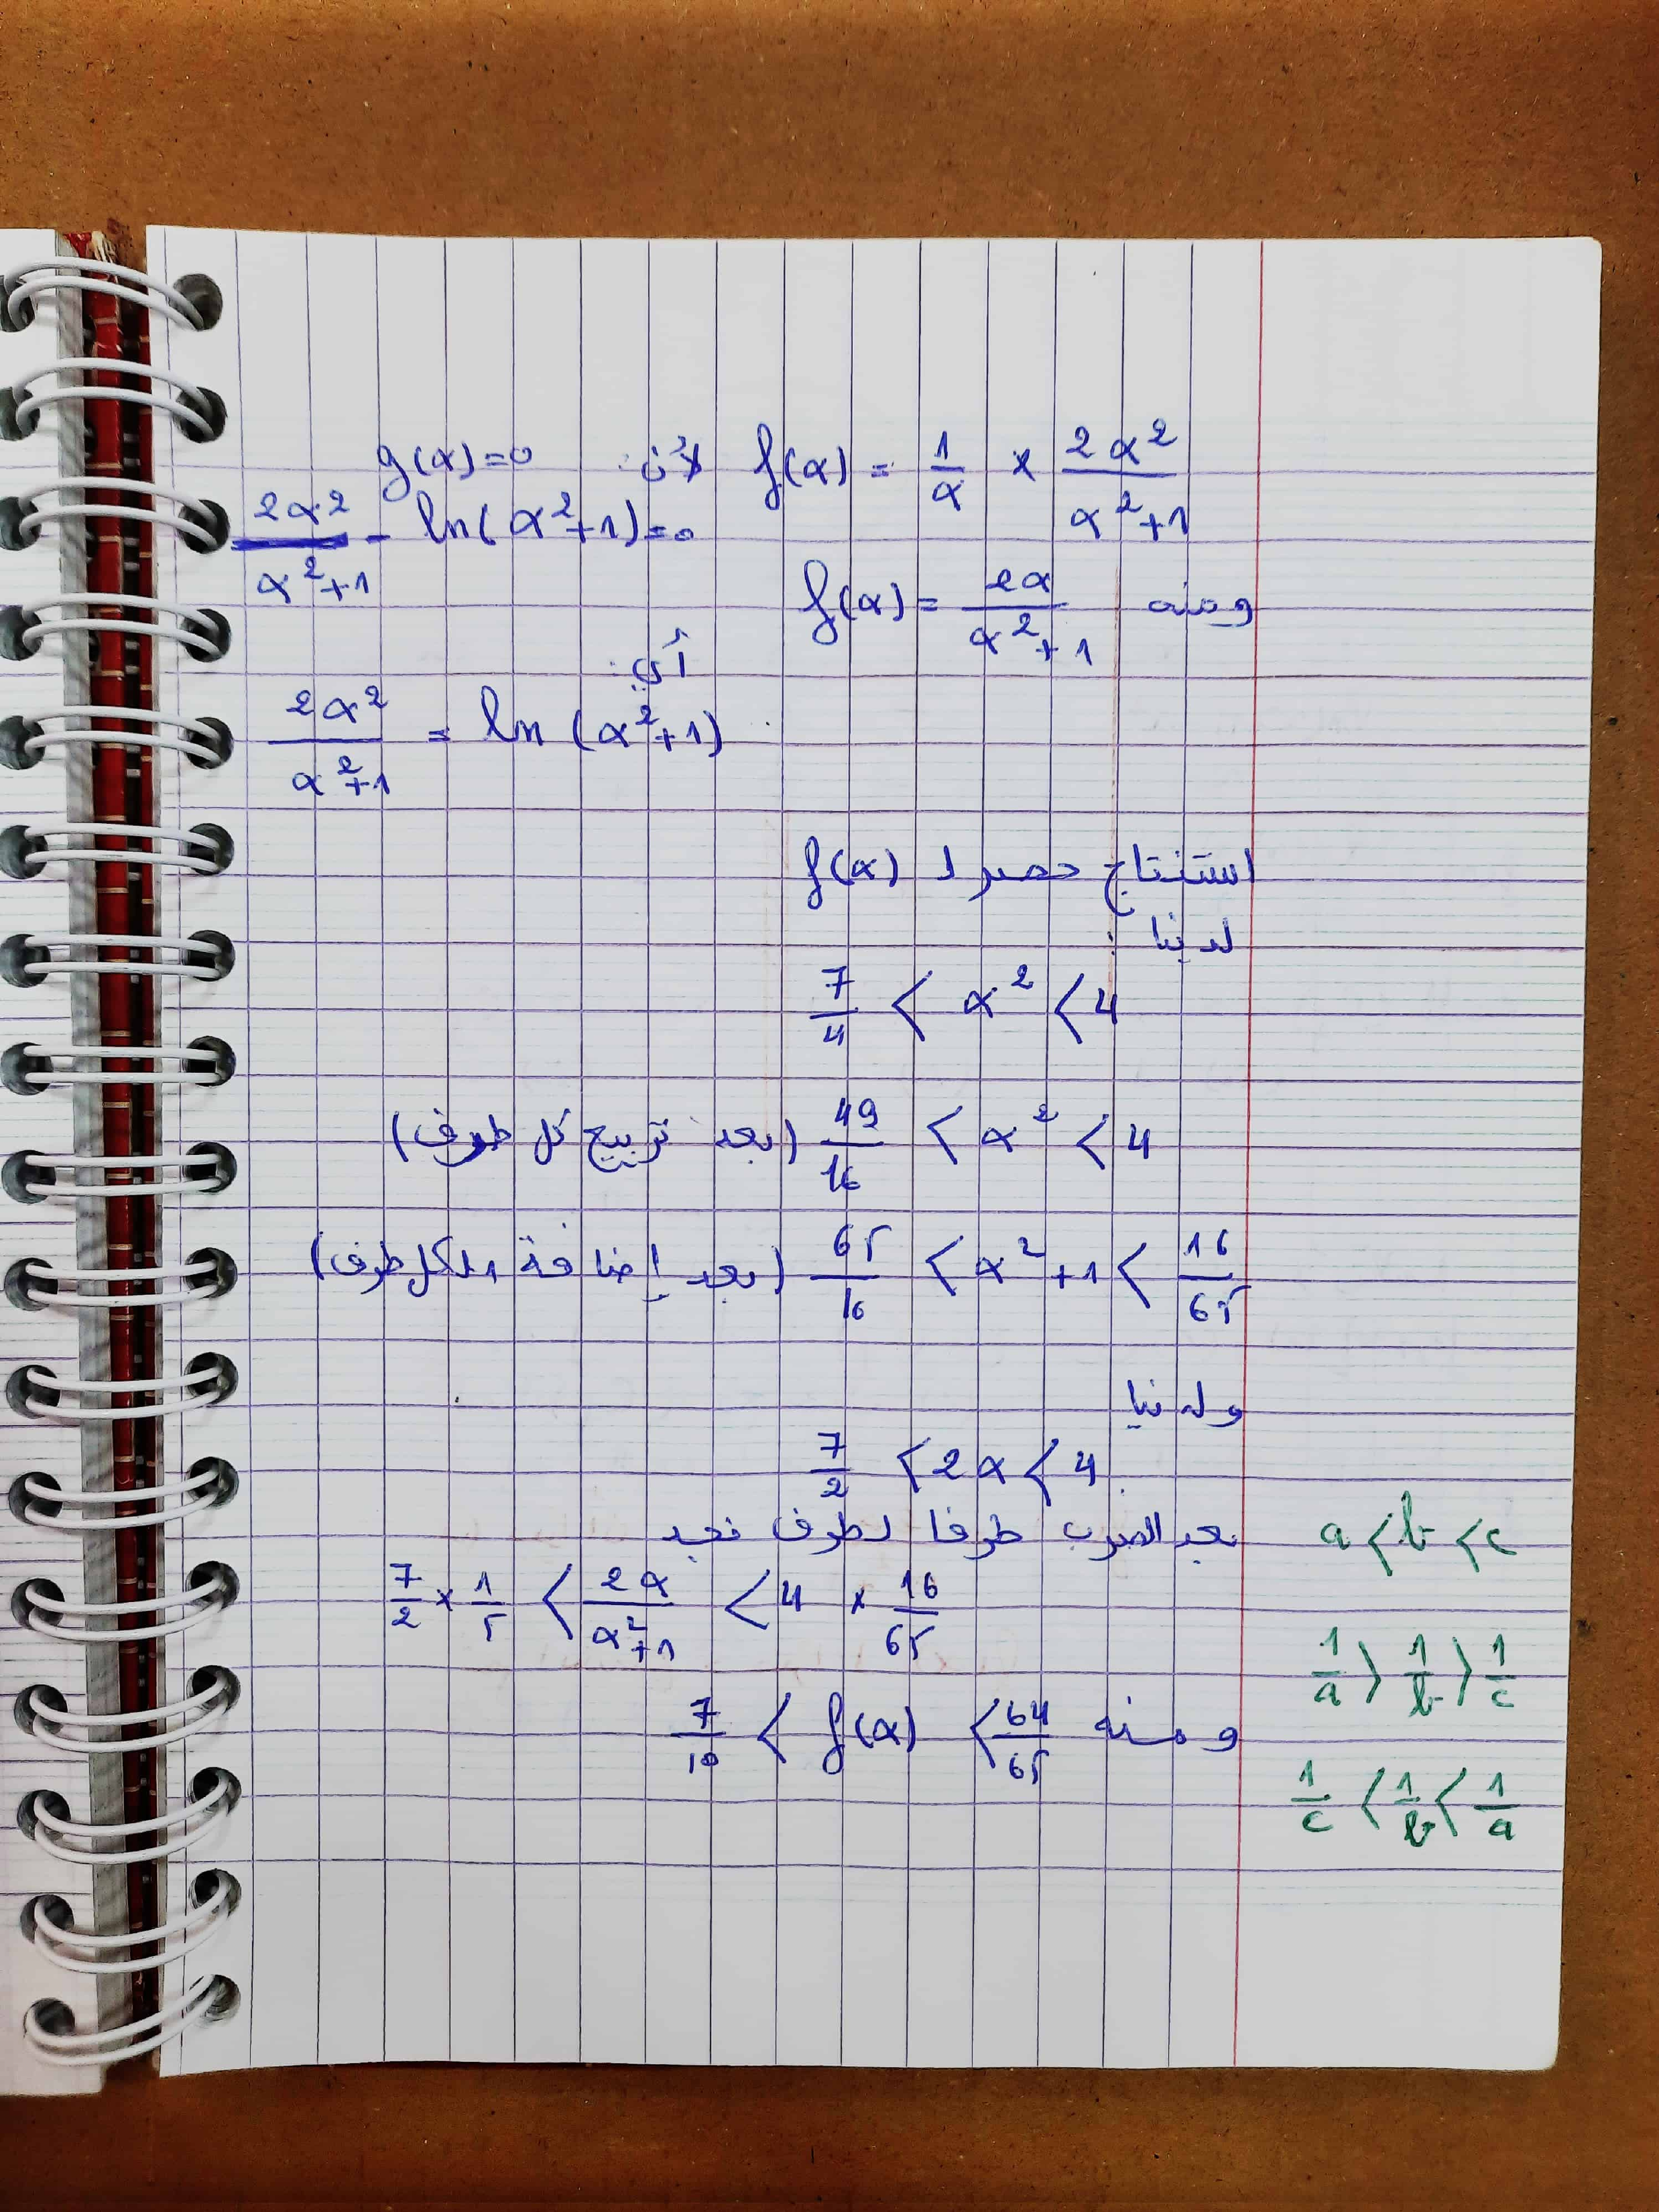 f(α) = 1/α × 2α²/(α²+1) لأن: g(α)=0
2α²/(α²+1) - ln(α²+1)=0
ومنه f(α) = 2α/(α²+1)
أي:
2α²/(α²+1) = ln(α²+1)
استنتاج حصر لـ f(α)
لدينا:
7/4 < α² < 4
49/16 < α² < 4 (بعد تربيع كل طرف)
65/16 < α²+1 < 16/65 (بعد إضافة 1 لكل طرف)
ولدينا
7/2 < 2α < 4
بعد الضرب طرفا لطرف نجد
7/2 × 1/5 < 2α/(α²+1) < 4 × 16/65
ومنه 7/10 < f(α) < 64/65
a < b < c
1/a > 1/b > 1/c
1/c < 1/b < 1/a